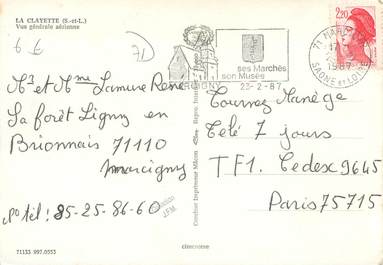 LA CLAYETTE (S.-et-L.)
Vue générale aérienne
6 6
71
ses Marchés
son Musée
MARCIGNY 23-2-87
71 MARCIGNY
1987
SAONE ET LOIRE
2,20
Mr et Mme Lamure René
La forêt Ligny en
Brionnais 71110
Marcigny
n° tel : 85-25-86-60
JFM
Tournez Manège
Télé 7 jours
TF1. Cedex 9645
Paris 75715
Combier Imprimeur Mâcon
71133 997.0553
cimcrome